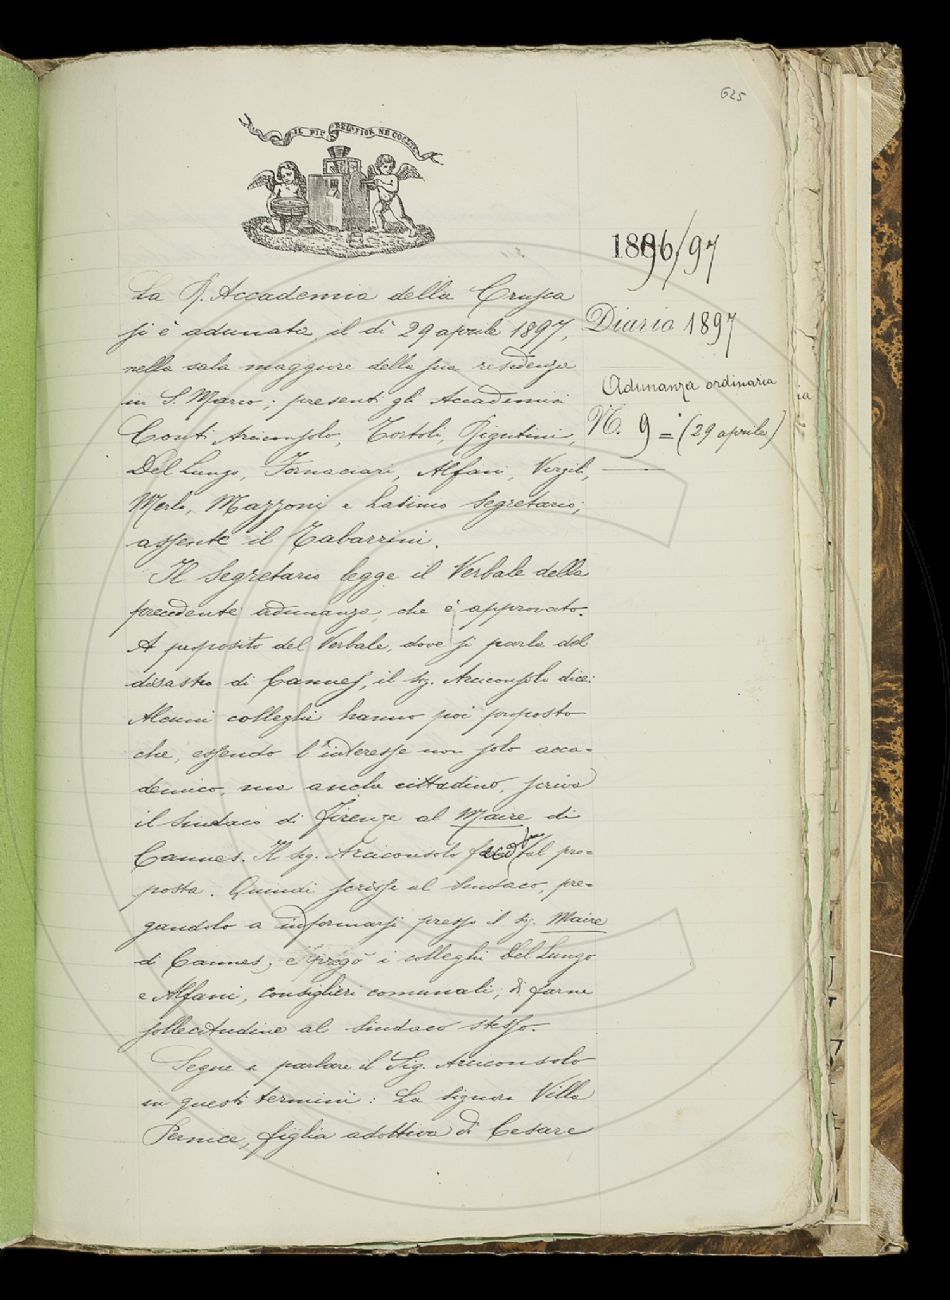 625
IL PIÙ BEL FIOR NE COGLIE
1896/97
La R. Accademia della Crusca
si è adunata, il dì 29 aprile 1897,
Diario 1897
nella sala maggiore della sua residenza
Adunanza ordinaria
in S. Marco; presenti gli Accademici
N. 9 = (29 aprile)
Conti Arciconsolo, Tortoli, Rigutini,
Del Lungo, Fornaciari, Alfani, Virgili,
Merlo, Mazzoni e Latino Segretario;
assente il Tabarrini.
Il Segretario legge il Verbale della
precedente adunanza, che è approvato.
A proposito del Verbale, dove si parla del
disastro di Cannes, il Sig. Arciconsolo dice:
Alcuni colleghi hanno poi proposto
che, essendo l'interesse non solo acca-
demico, ma anche cittadino, scriva
il Sindaco di Firenze al Maire di
Cannes. Il Sig. Arciconsolo tal pro-
posta. Quindi scrisse al Sindaco, pre-
gandolo a informarsi presso il Sig. Maire
di Cannes; e pregò i colleghi Del Lungo
e Alfani, consiglieri comunali, di farne
sollecitudine al Sindaco stesso.
Segue a parlare il Sig. Arciconsolo
in questi termini: La Signora Villa
Pernice, figlia adottiva di Cesare